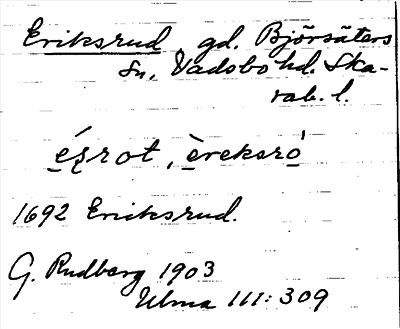 Eriksrud gd. Björsäters
Sn, Vadsbo hd. Ska-
rab. l.
ézrot, èreksró
1692 Ericksrud.
G. Rudberg 1903
Ulma 111:309